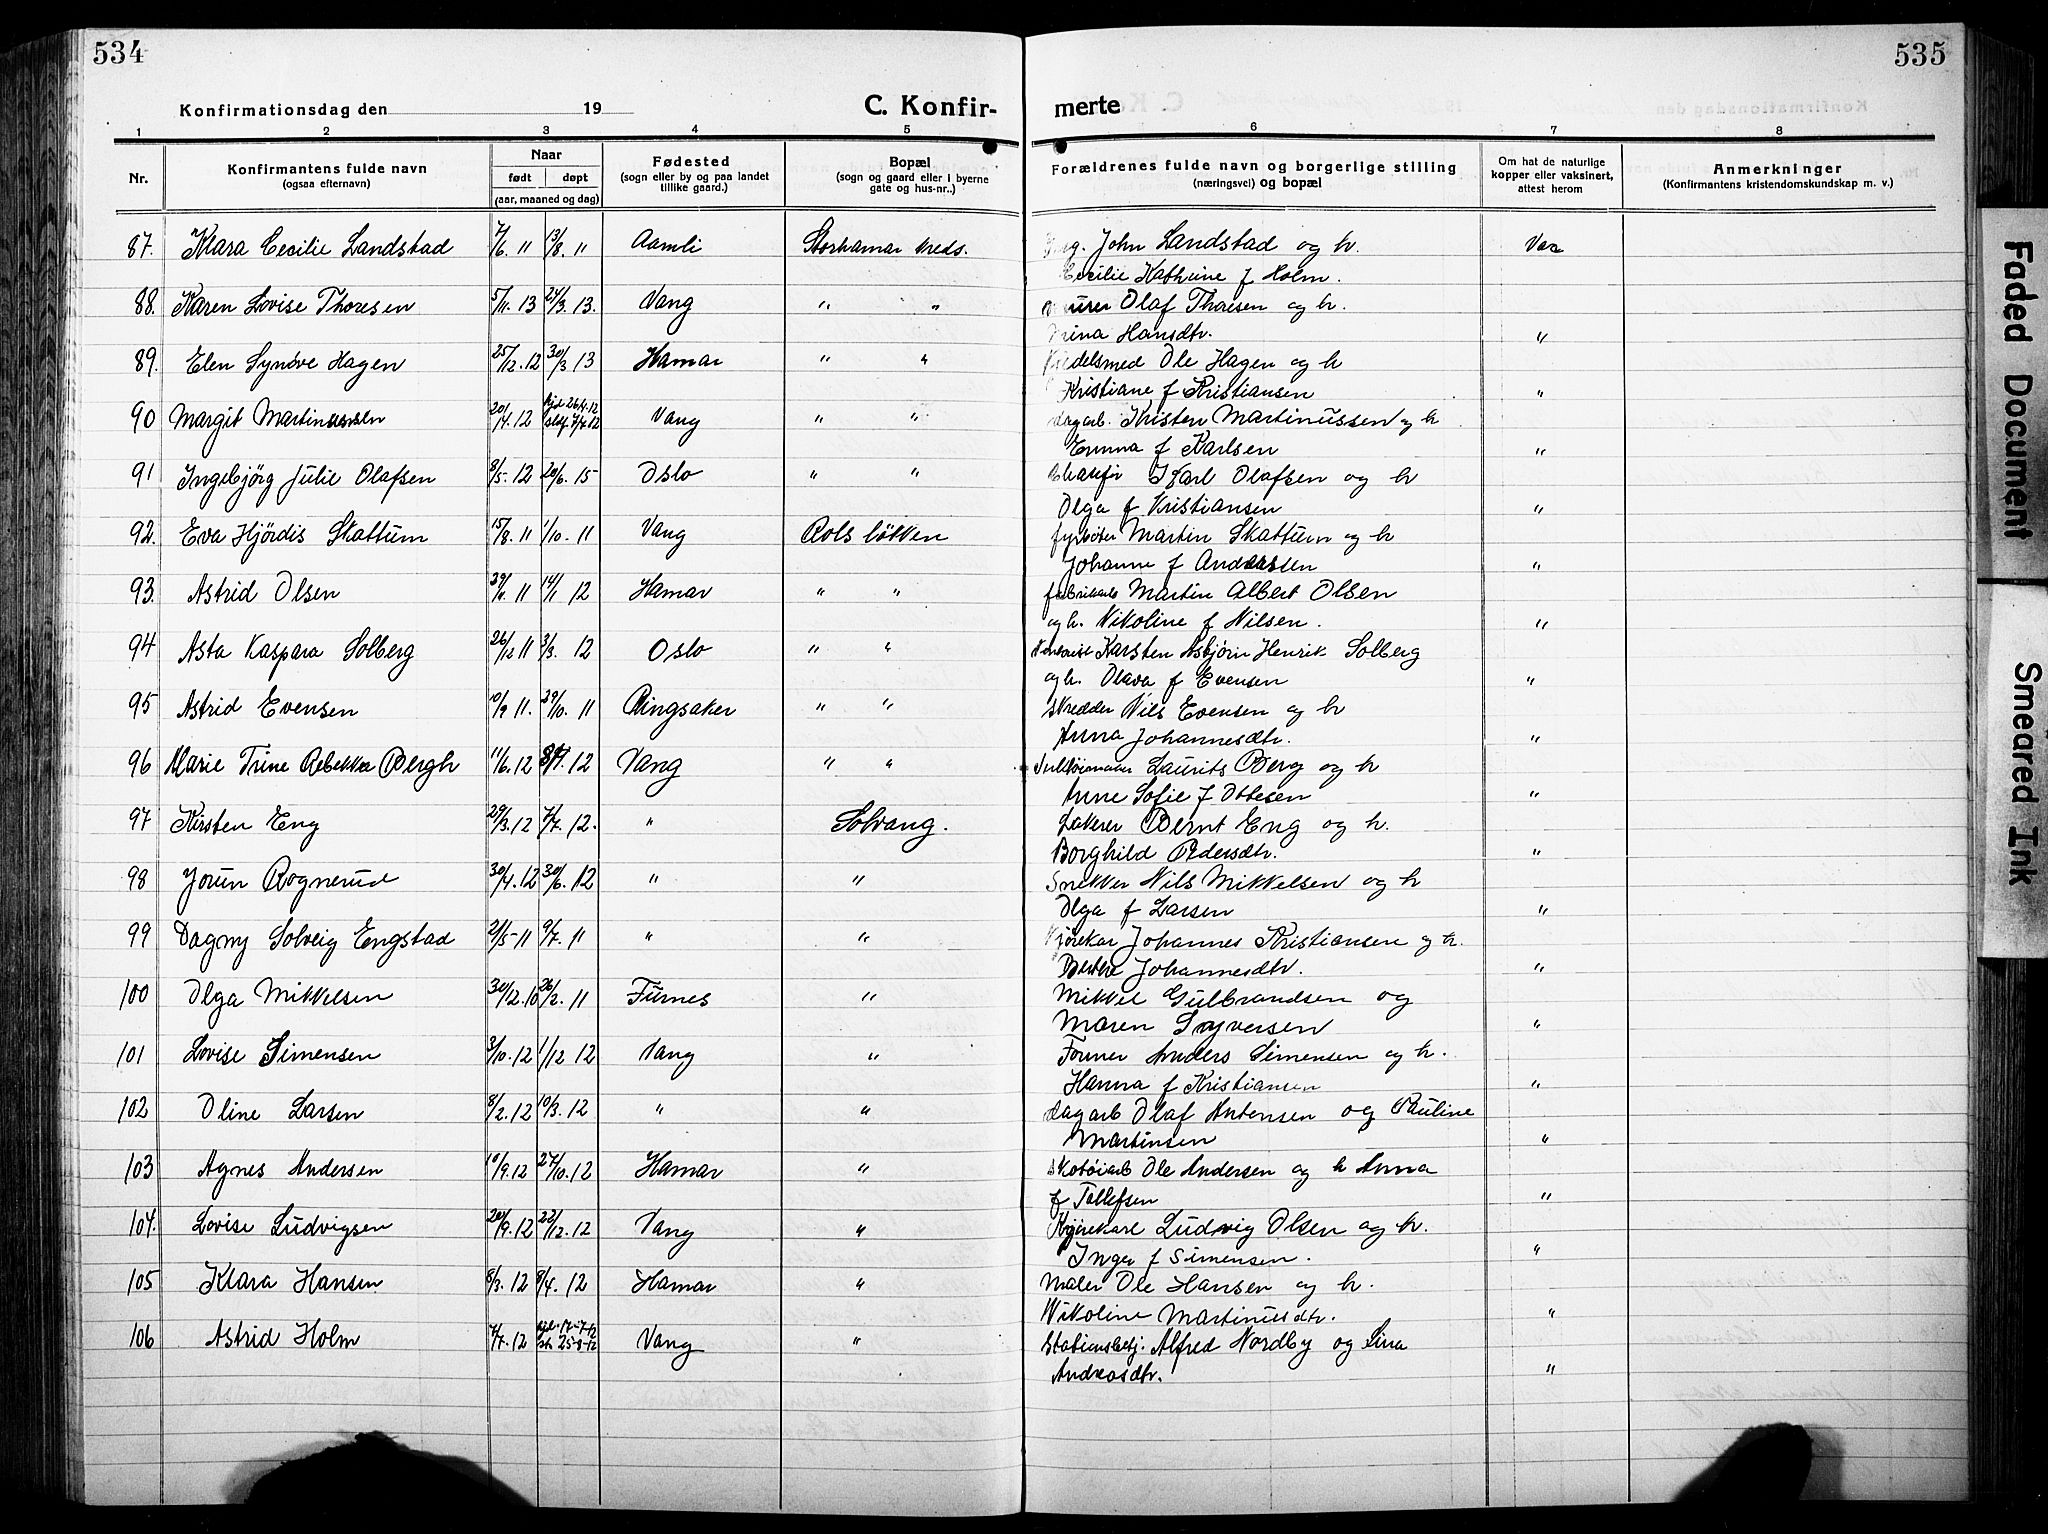 534
535
Konfirmationsdag den 19
C. Konfir-
merte
1 2 3 4 5 6 7 8
Nr.
Konfirmantens fulde navn
(ogsaa efternavn)
Naar
født døpt
(aar, maaned og dag)
Fødested
(sogn eller by og paa landet
tillike gaard.)
Bopæl
(sogn og gaard eller i byerne
gate og hus-nr..)
Forældrenes fulde navn og borgerlige stilling
(næringsvei) og bopæl
Om hat de naturlige
kopper eller vaksinert,
attest herom
Anmerkninger
(Konfirmantens kristendomskundskap m. v.)
87. Klara Cecilie Landstad 7/6. 11 13/8. 11 Aamli Storhamar neds. John Landstad og h. Vac
Cecilie Kathrine f Holm.
88. Karen Lovise Thoresen 5/11. 13 24/3. 13. Vang " " Olaf Thoresen og h.
Hansdtr. "
89. Elen Synöve Hagen 25/12. 12 30/3 13 Hamar " " Ole Hagen og h
Kristiane f Kristiansen "
90 Margit Martinussen 20/4. 12 Vang " " dagarb. Kristen Martinussen og h
Emma f Karlsen "
91 Ingebjörg Julie Olafsen 8/5. 12 20/6. 15 Oslo " " Karl Olafsen og h
Olga f Kristiansen "
92. Eva Hjördis Skattum 15/8. 11 1/10. 11 Vang Rolsløkken fyrbøter Martin Skattum og h
Johanne f Anderssen "
93. Astrid Olsen 11 14/1 12 Hamar " " fabrikarb Martin Albert Olsen
og h. Nikoline f Nilsen. "
94 Asta Kaspara Solberg 26/12 11 3/3. 12 Oslo " " Karsten Asbjörn Henrik Solberg
og h. Olava f Evensen "
95 Astrid Evensen 10/9 11. 29/10. 11 Ringsaker " " skredder Nils Evensen og h
Anna Johannesdtr. "
96 Marie Trine Rebekka Bergh 11/6. 12 12 Vang " " Laurits Berg og h
Anne Sofie f Ottesen "
97 Kirsten Eng 29/3. 12 7/7. 12. " Solvang. Bernt Eng og h.
Borghild Pedersdtr. "
98 Jorun Rognerud 30/4. 12 30/6. 12 " " Snekker Nils Mikkelsen og h
Olga f Larsen "
99 Dagny Solveig Engstad 21/5 11 9/7. 11 " " Kjørekar Johannes Kristiansen og h.
Johannesdtr. "
100 Olga Mikkelsen 30/12. 10 26/2. 11 Furnes " Mikkel Gulbrandsen og
Maren Syversen "
101 Lovise Simensen 3/10. 12 1/12 12 Vang " Anders Simensen og h.
Hanna f Kristiansen "
102 Oline Larsen 8/2. 12 10/3. 12 " " dagarb Olaf Antensen og Pauline
Martinsen "
103 Agnes Andersen 10/9. 12 27/10. 12 Hamar " skotøiarb Ole Andersen og h Anna
f Tollefsen "
104. Lovise Ludvigsen 20/9. 12 22/12. 12 Vang " Kjörekarl Ludvig Olsen og h.
Inger f Simensen. "
105 Klara Hansen 8/3. 12 9/4. 12 Hamar " Maler Ole Hansen og h.
Nikoline Martinusdtr. "
106 Astrid Holm 7/7. 12 17-7-12 Vang " Stationsbetj. Alfred Nordby og Lina
25-8-12
Andreasdtr. "
Faded Document
Smeared Ink